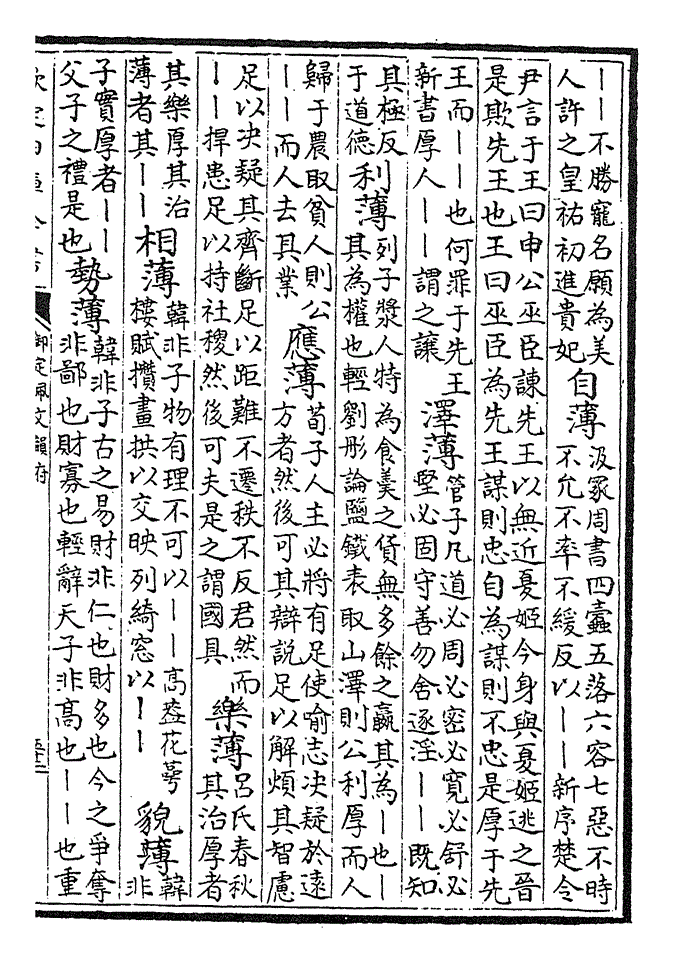 ——不勝寵名願為美
人許之皇祐初進貴妃
自薄
汲冢周書四蠹五落六容七惡不時
不允不率不緩反以——新序楚令
尹言于王曰申公巫臣諫先王以無近夏姬今身與夏姬逃之晉
是欺先王也王曰巫臣為先王謀則忠自為謀則不忠是厚于先
王而——也何罪于先王
新書厚人——謂之讓
澤薄
管子凡道必周必密必寬必舒必
堅必固守善勿舍逐淫——既知
其極反
于道德
利薄
列子漿人特為食羹之貨無多餘之贏其為—也—
其為權也輕劉彤論鹽鐵表取山澤則公利厚而人
歸于農取貧人則公
——而人去其業
應薄
荀子人主必將有足使喻志决疑於遠
方者然後可其辯說足以解煩其智慮
足以决疑其齊斷足以距難不遷秩不反君然而
——捍患足以持社稷然後可夫是之謂國具
樂薄
呂氏春秋
其治厚者
其樂厚其治
薄者其——
相薄
韓非子物有理不可以——高盖花萼
樓賦攢畫拱以交映列綺窓以——
貌薄
韓
非
子實厚者——
父子之禮是也
勢薄
韓非子古之易財非仁也財多也今之爭奪
非鄙也財寡也輕辭天子非高也——也重
欽定四庫全書
御定佩文韻府